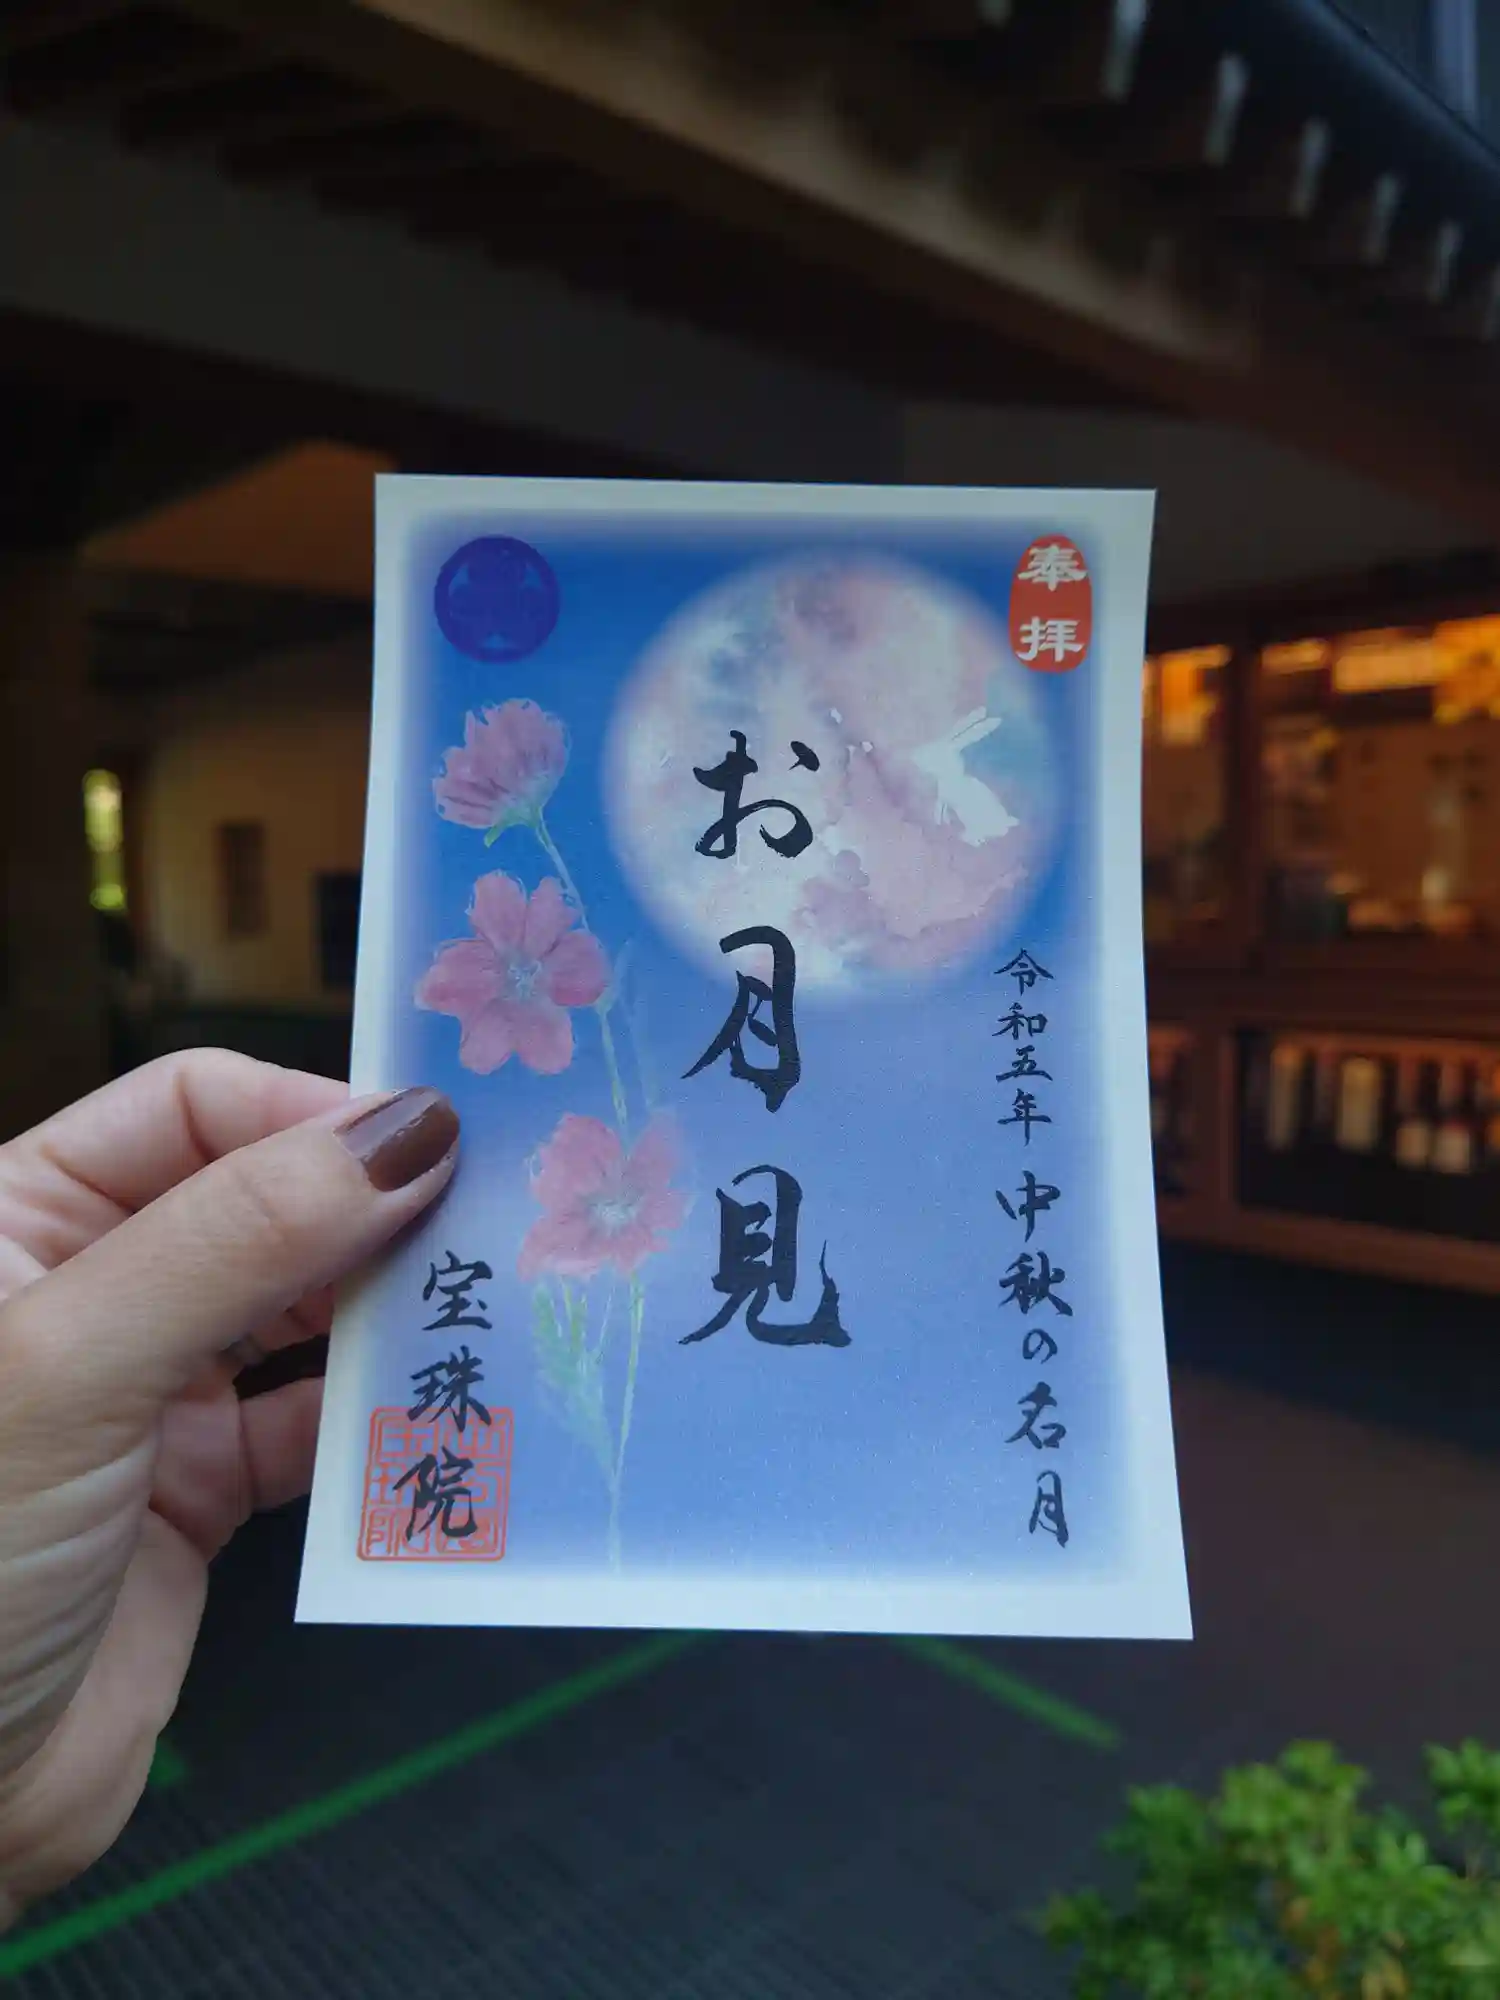 奉拝
令和五年 中秋の名月
お月見
宝珠院